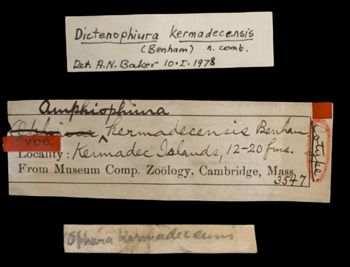 Dictenophiura kermadecensis
(Benham) n. comb.
Det. A.N. Baker 10·I·1978
Amphiophiura
kermadecensis Benham
Cotype
Type.
Locality: Kermadec Islands, 12-20 fms.
From Museum Comp. Zoölogy, Cambridge, Mass.
3547
kermadecensis